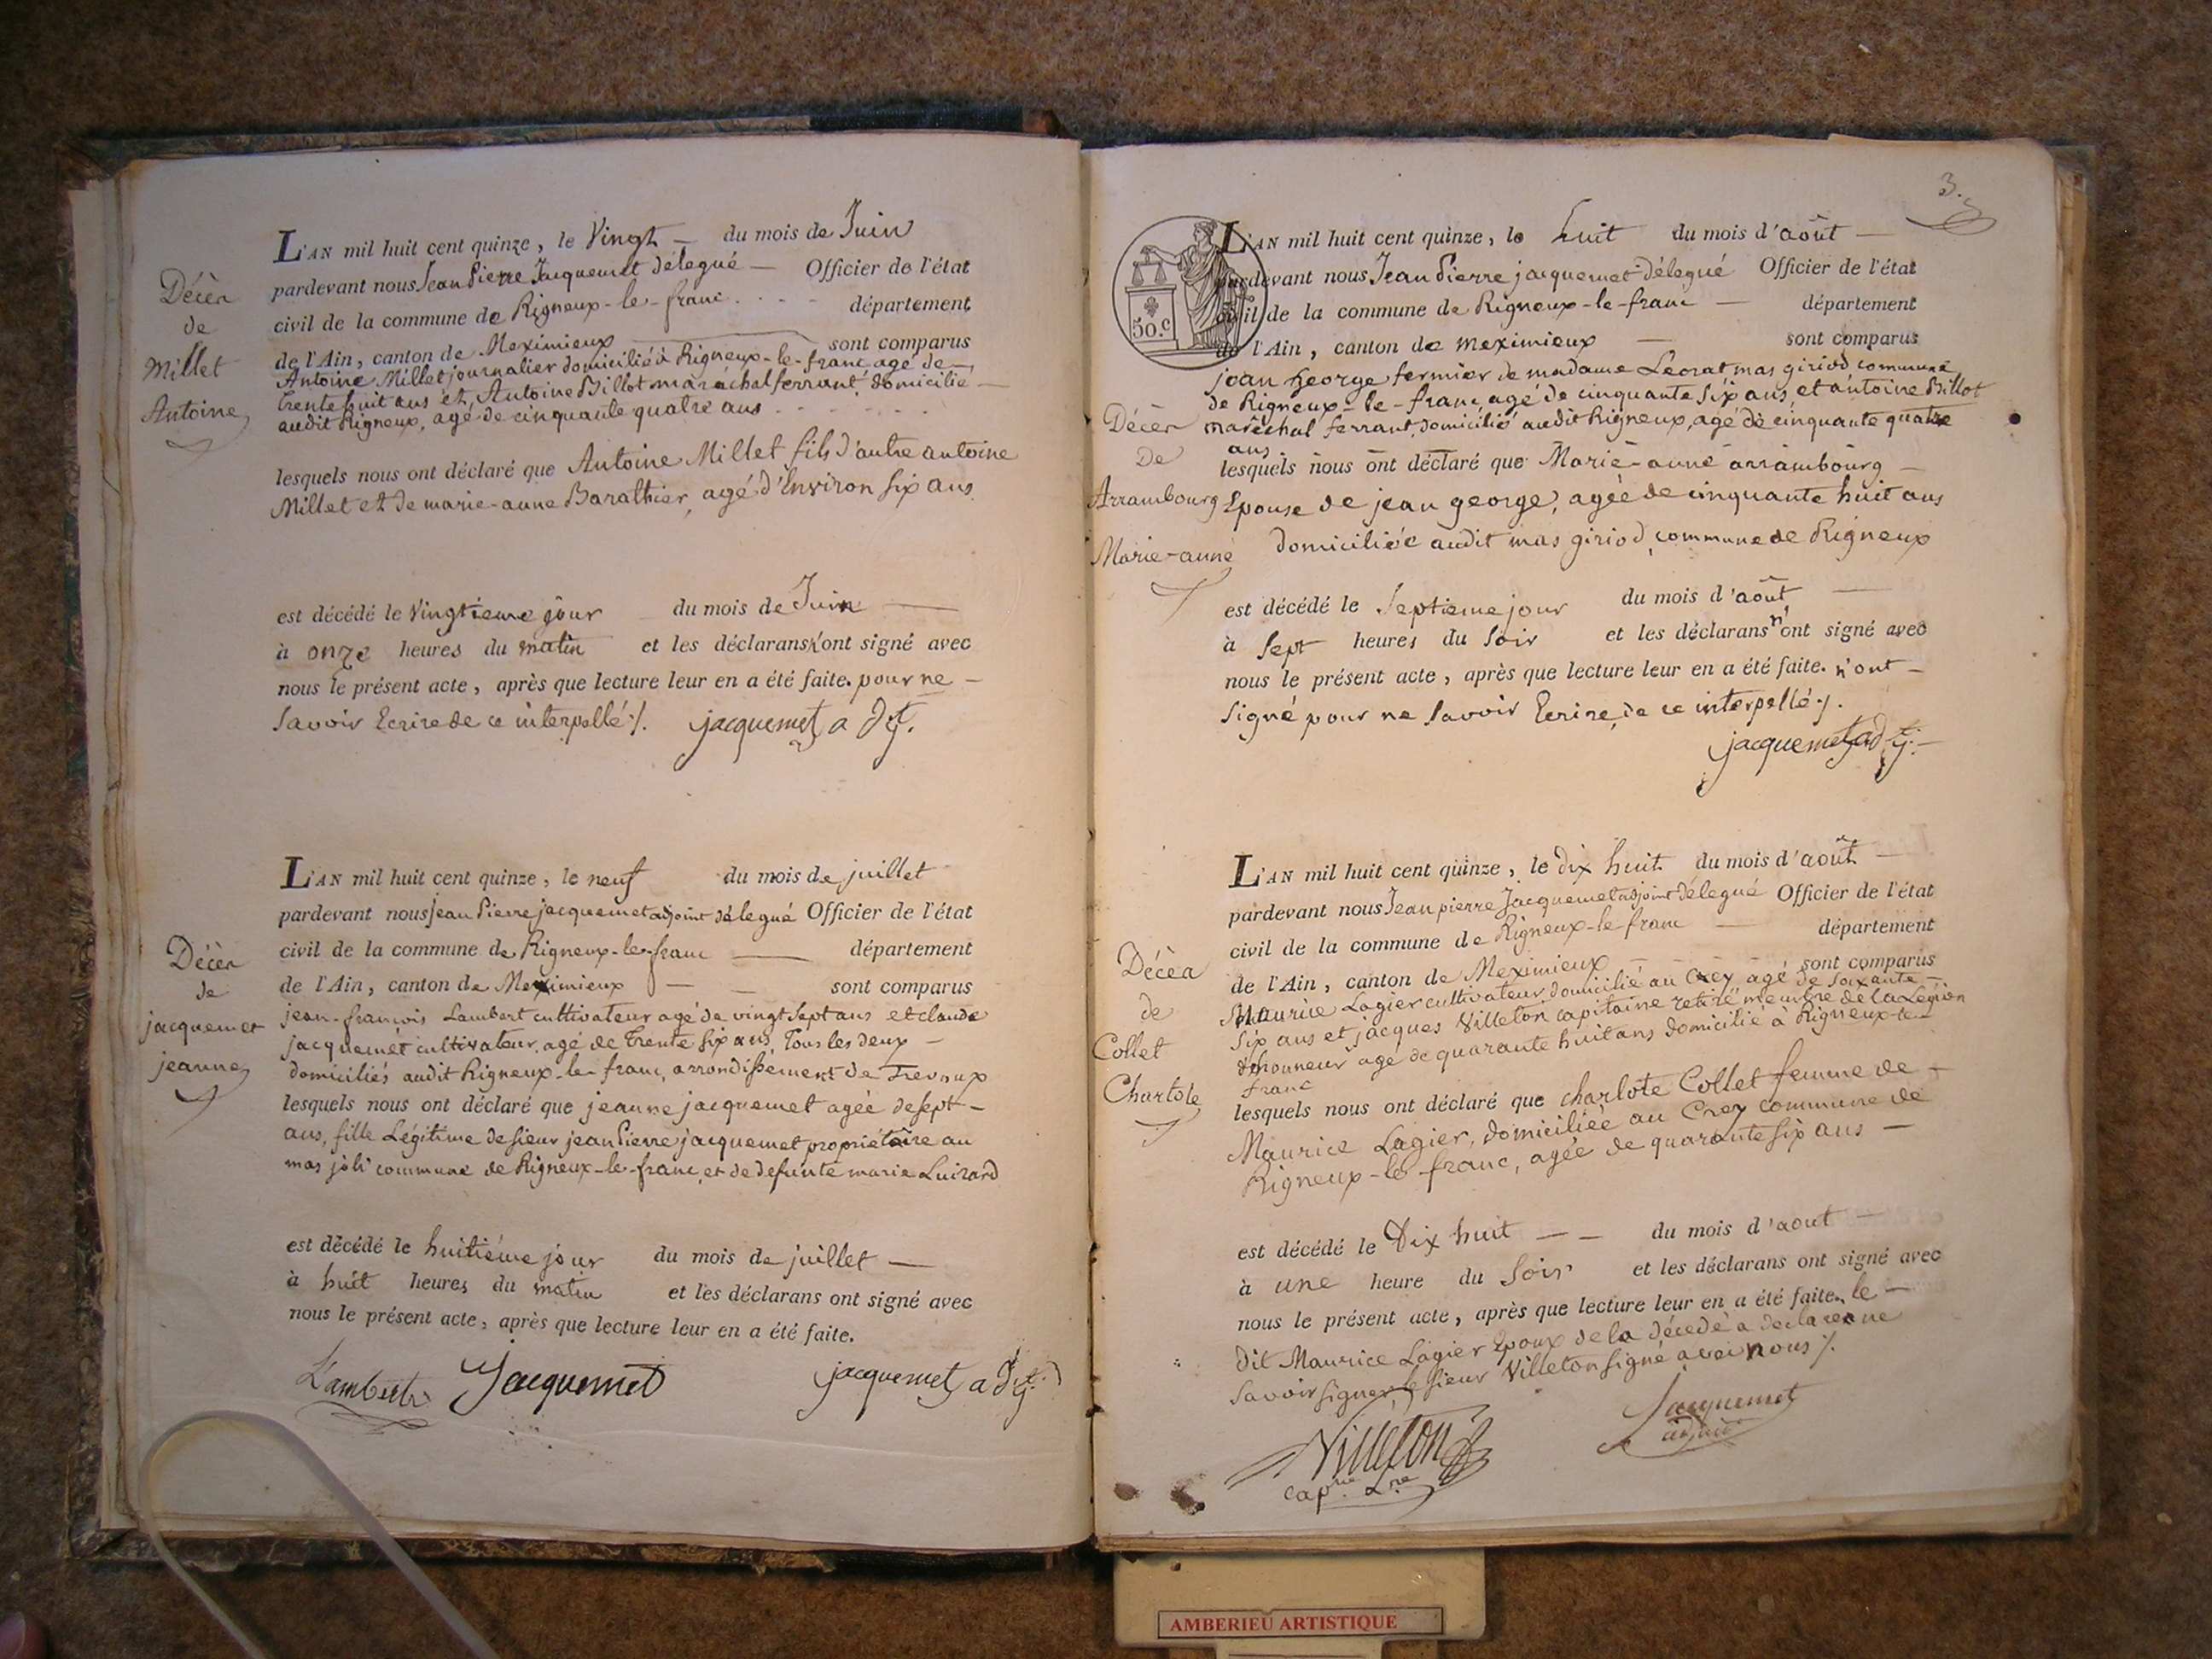 Décès
de
Millet
Antoine
L'AN mil huit cent quinze, le Vingt du mois de Juin
pardevant nous Jean Pierre Jacquemet délegué Officier de l'état
civil de la commune de Rigneux-le-franc département
de l'Ain, canton de Meximieux sont comparus
Antoine Millet journalier domicilié à Rigneux-le-franc agé de
trente huit ans et Antoine Billot maréchal ferrant domicilié
audit Rigneux, agé de cinquante quatre ans
lesquels nous ont déclaré que Antoine Millet fils d'autre antoine
Millet et de marie-anne Barathier, agé d'Environ six ans
est décédé le Vingtieme jour du mois de Juin
à onze heures du matin et les déclarans n'ont signé avec
nous le présent acte, après que lecture leur en a été faite. pour ne
savoir Ecrire de ce interpellé ⁒. jacquemet adjt.
Décès
de
jacquemet
jeanne
L'AN mil huit cent quinze, le neuf du mois de juillet
pardevant nous jean Pierre jacquemet adjoint délegué Officier de l'état
civil de la commune de Rigneux-le-franc département
de l'Ain, canton de Meximieux sont comparus
jean-francois Lambert cultivateur agé de vingt sept ans et claude
jacquemet cultivateur, agé de trente six ans, Tous les deux
domiciliés audit Rigneux-le-franc, arrondissement de Trevoux
lesquels nous ont déclaré que jeanne jacquemet agée de sept
ans, fille Légitime de sieur jean Pierre jacquemet propriétaire au
mas joli commune de Rigneux-le-franc, et de defunte marie Luizard
est décédé le huitiéme jour du mois de juillet
à huit heures du matin et les déclarans ont signé avec
nous le présent acte, après que lecture leur en a été faite.
Lambert Jacquemet jacquemet adjt.
3.
50.c
Décès
De
Arrambourg
Marie-anne
L'AN mil huit cent quinze, le huit du mois d'août
pardevant nous Jean Pierre jacquemet délegué Officier de l'état
civil de la commune de Rigneux-le-franc département
de l'Ain, canton de meximieux sont comparus
jean george fermier de madame Leorat mas giriod commune
de Rigneux-le-franc agé de cinquante six ans, et antoine Billot
maréchal ferrant, domicilié audit Rigneux, agé de cinquante quatre
ans
lesquels nous ont déclaré que Marie-anne arrambourg
Epouse de jean george, agée de cinquante huit ans
domiciliée audit mas giriod, commune de Rigneux
est décédé le septieme jour du mois d'août
à sept heures du soir et les déclarans n'ont signé avec
nous le présent acte, après que lecture leur en a été faite. n'ont
signé pour ne savoir Ecrire, de ce interpellé ⁒.
jacquemet adjt.
Décès
de
Collet
Charlote
L'AN mil huit cent quinze, le dix huit du mois d'août
pardevant nous Jean pierre Jacquemet adjoint délegué Officier de l'état
civil de la commune de Rigneux-le-franc département
de l'Ain, canton de Meximieux sont comparus
Maurice Lagier cultivateur, domicilié au Crey agé de soixante
six ans et jacques Villeton capitaine retiré membre de la Légion
d'honneur agé de quarante huit ans domicilié à Rigneux-le-
franc
lesquels nous ont déclaré que charlote Collet femme de
Maurice Lagier, domiciliée au Crey commune de
Rigneux-le-franc, agée de quarante six ans
est décédé le Dix huit du mois d'aout
à une heure du soir et les déclarans ont signé avec
nous le présent acte, après que lecture leur en a été faite. le
dit Maurice Lagier Epoux de la décedé a declaré ne
savoir signer, le sieur Villeton signé avec nous ⁒.
Villeton Jacquemet
adjoint
AMBERIEU ARTISTIQUE